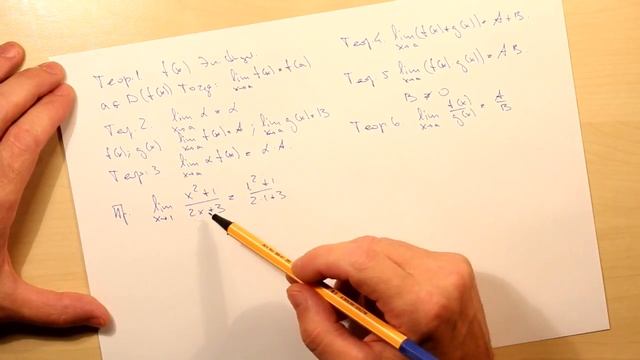 Теор.1 f(x) Эл. функц.
a ∈ D(f(x)) Тогда lim x→a f(x) = f(a)
Теор.2. lim x→a α = α
f(x); g(x) lim x→a f(x) = A; lim x→a g(x) = B
Теор.3 lim x→a αf(x) = α·A.
Пр. lim x→1 (x²+1)/(2x+3) = (1²+1)/(2·1+3)
Теор 4. lim x→a (f(x)+g(x)) = A+B.
Теор 5 lim x→a (f(x)·g(x)) = A·B
B ≠ 0
Теор 6. lim x→a f(x)/g(x) = A/B